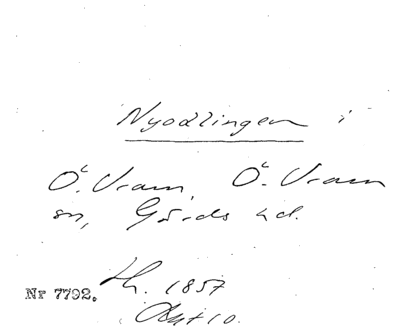 Nyodlingen i
Ö. Vram, Ö. Vram
sn, Gärds hd.
Th. 1857
Nr 7792.
Akt 10.